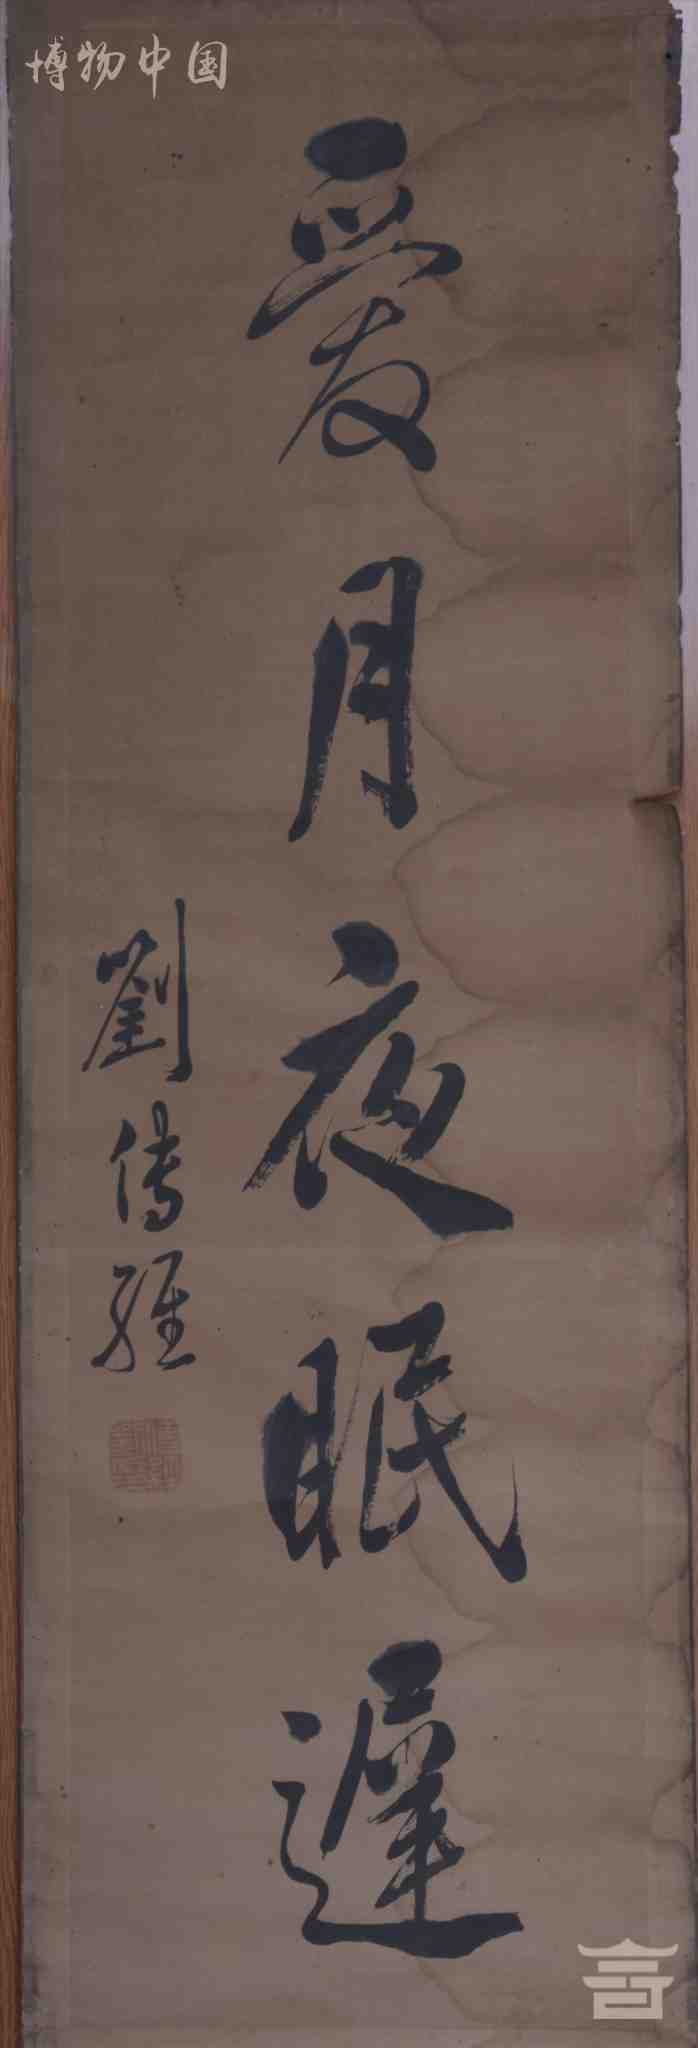 博物中国
愛月夜眠遲
劉傳經